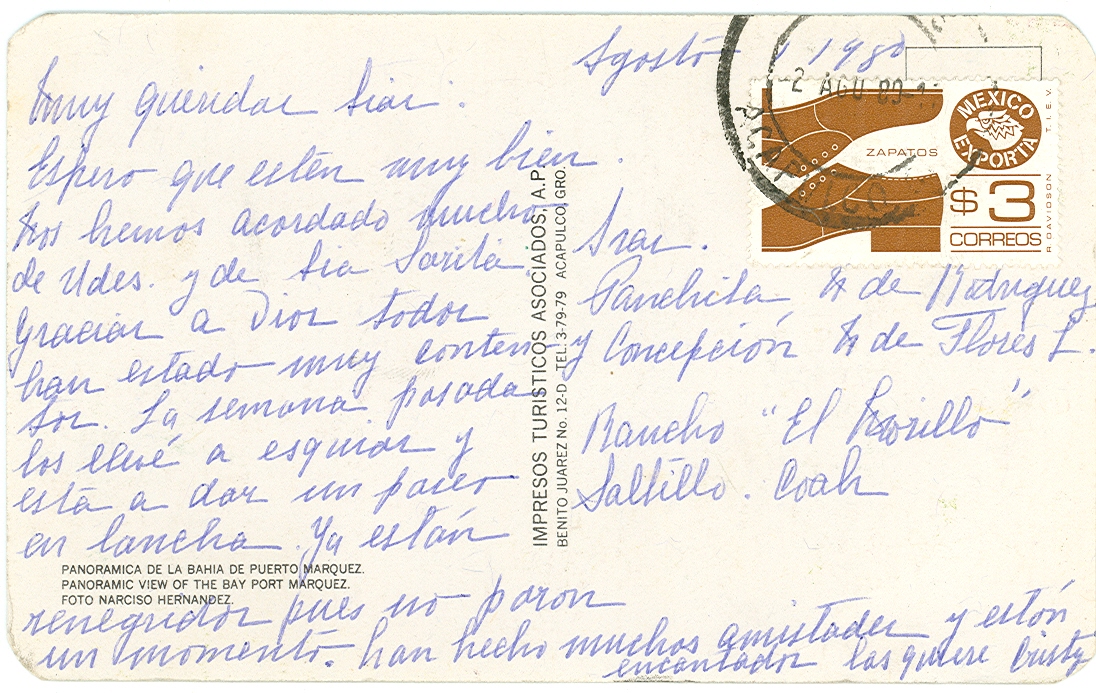 Agosto 1 1980
Muy queridas tías:
Espero que estén muy bien.
Nos hemos acordado mucho
de Udes. y de tía Sarita.
Gracias a Dios todos
han estado muy conten-
tos. La semana pasada
los llevé a esquiar y
está a dar un paseo
en lancha. Ya están
renegridos pues no paran
un momento. han hecho muchas amistades y están
encantados las quiere Cristy
Sras.
Panchita de Rodríguez
y Concepción de Flores L.
Rancho "El Morillo"
Saltillo. Coah
2 AGO 80
MEXICO EXPORTA
ZAPATOS
$3
CORREOS
T.I.E.V.
R DAVIDSON
IMPRESOS TURISTICOS ASOCIADOS, A.P.
BENITO JUAREZ No. 12-D TEL. 3-79-79 ACAPULCO, GRO.
PANORAMICA DE LA BAHIA DE PUERTO MARQUEZ.
PANORAMIC VIEW OF THE BAY PORT MARQUEZ.
FOTO NARCISO HERNANDEZ.